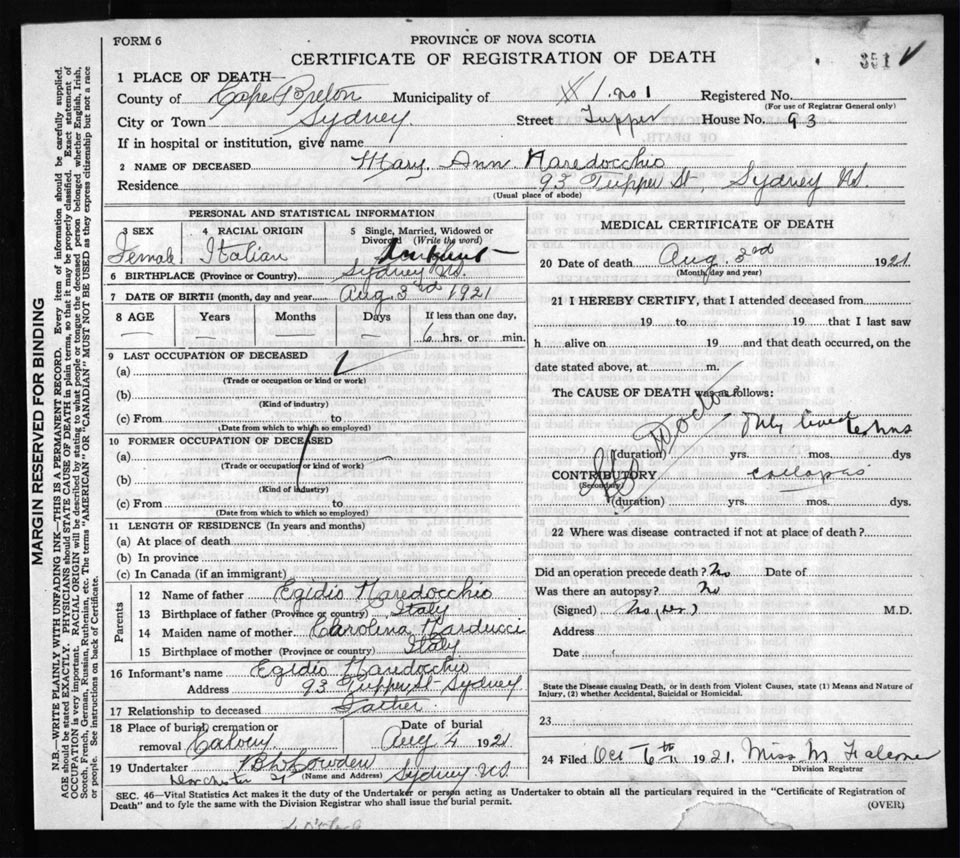 FORM 6
PROVINCE OF NOVA SCOTIA
CERTIFICATE OF REGISTRATION OF DEATH
351
1 PLACE OF DEATH—
County of Cape Breton Municipality of No 1 Registered No.
(For use of Registrar General only)
City or Town Sydney Street Tupper House No. 93
If in hospital or institution, give name
2 NAME OF DECEASED Mary Ann Naredocchio
Residence 93 Tupper St, Sydney NS.
(Usual place of abode)
PERSONAL AND STATISTICAL INFORMATION
3 SEX 4 RACIAL ORIGIN 5 Single, Married, Widowed or Divorced (Write the word)
Female Italian
6 BIRTHPLACE (Province or Country) Sydney NS.
7 DATE OF BIRTH (month, day and year) Aug 3rd 1921
8 AGE Years Months Days If less than one day,
— — — 6 hrs. or min.
9 LAST OCCUPATION OF DECEASED
(a)
(Trade or occupation or kind or work)
(b)
(Kind of industry)
(c) From to
(Date from which to which so employed)
10 FORMER OCCUPATION OF DECEASED
(a)
(Trade or occupation or kind of work)
(b)
(Kind of industry)
(c) From to
(Date from which to which so employed)
11 LENGTH OF RESIDENCE (In years and months)
(a) At place of death
(b) In province
(c) In Canada (if an immigrant)
Parents
12 Name of father Egidio Naredocchio
13 Birthplace of father (Province or country) Italy
14 Maiden name of mother Carolina Narducci
15 Birthplace of mother (Province or country) Italy
16 Informant's name Egidio Naredocchio
Address 93 Tupper St Sydney
17 Relationship to deceased Father
18 Place of burial cremation or removal Calvary Date of burial Aug 4 1921
19 Undertaker B W Bowden
(Name and Address)
Dorchester St Sydney NS
MEDICAL CERTIFICATE OF DEATH
20 Date of death Aug. 3rd 1921
(Month, day and year)
21 I HEREBY CERTIFY, that I attended deceased from
19 to 19 that I last saw
h alive on 19 and that death occurred, on the
date stated above, at m.
The CAUSE OF DEATH was as follows:
No Doctor
Only lived 6 hrs
(duration) yrs. mos. dys
CONTRIBUTORY
(Secondary)
(duration) yrs. mos. dys.
22 Where was disease contracted if not at place of death?
Did an operation precede death? No Date of
Was there an autopsy? No
(Signed) M.D.
Address
Date
State the Disease causing Death, or in death from Violent Causes, state (1) Means and Nature of Injury, (2) whether Accidental, Suicidal or Homicidal.
23
24 Filed Oct 6th 1921, Miss M Falconer
Division Registrar
SEC. 46—Vital Statistics Act makes it the duty of the Undertaker or person acting as Undertaker to obtain all the particulars required in the "Certificate of Registration of
Death" and to fyle the same with the Division Registrar who shall issue the burial permit.
(OVER)
MARGIN RESERVED FOR BINDING
N.B.—WRITE PLAINLY WITH UNFADING INK—THIS IS A PERMANENT RECORD. Every item of information should be carefully supplied.
AGE should be stated EXACTLY. PHYSICIANS should STATE CAUSE OF DEATH in plain terms, so that it may be properly classified. Exact statement of
OCCUPATION is very important. RACIAL ORIGIN will be described by stating to what people or tongue the deceased person belonged whether English, Irish,
Scotch, French, German, Russian, Ruthenian, etc. The terms "AMERICAN" OR "CANADIAN" MUST NOT BE USED as they express citizenship but not a race
or people. See instructions on back of Certificate.